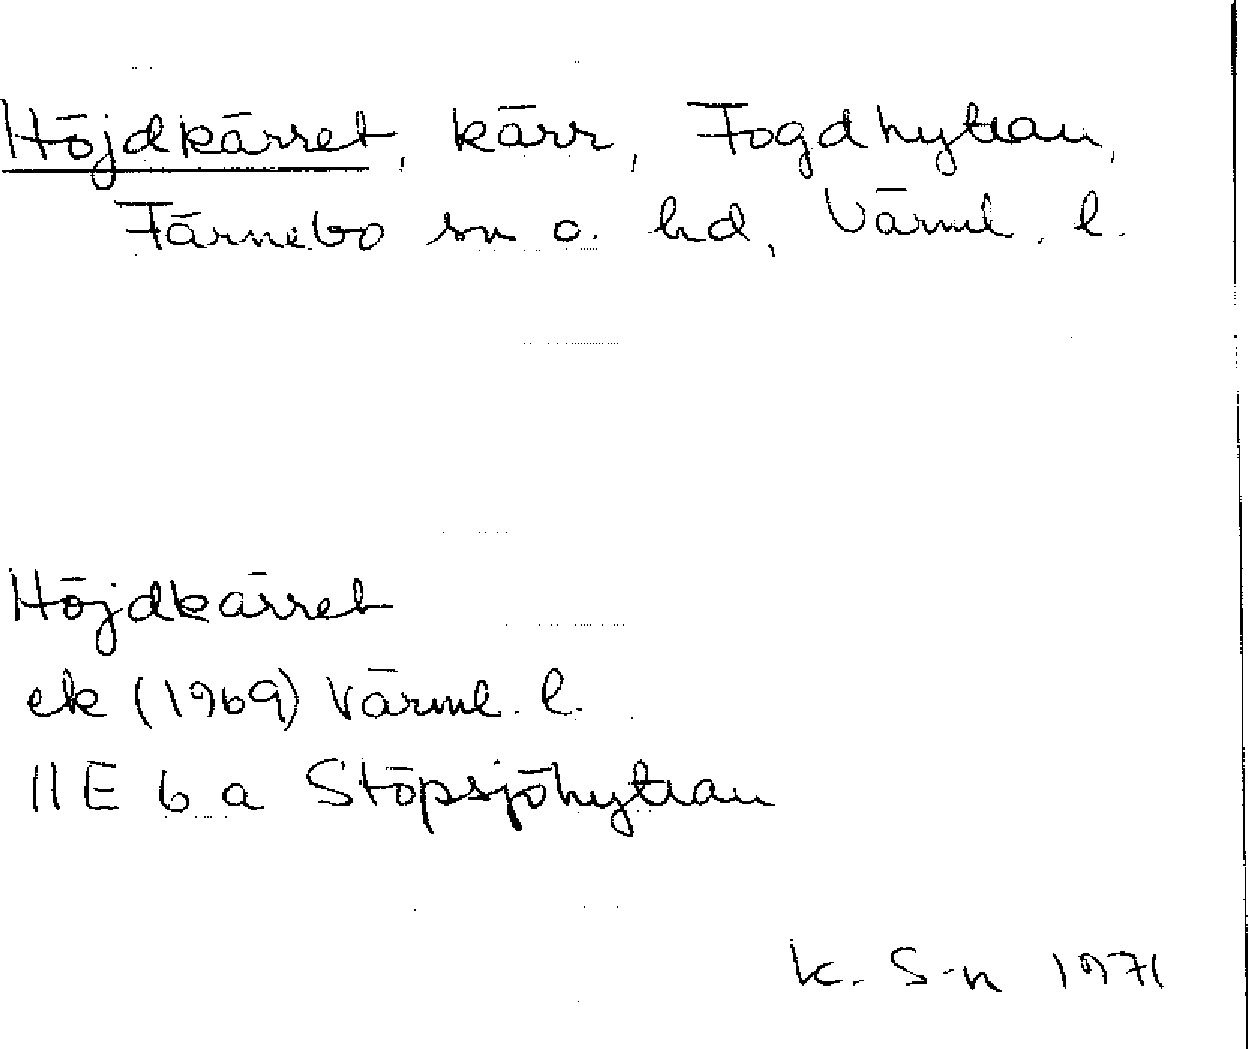 Höjdkärret, kärr, Fogdhyttan,
Färnebo sn o. hd, Värml. l.
Höjdkärret
ek (1969) Värml. l.
11 E 6 a Stöpsjöhyttan
K. S-n 1971